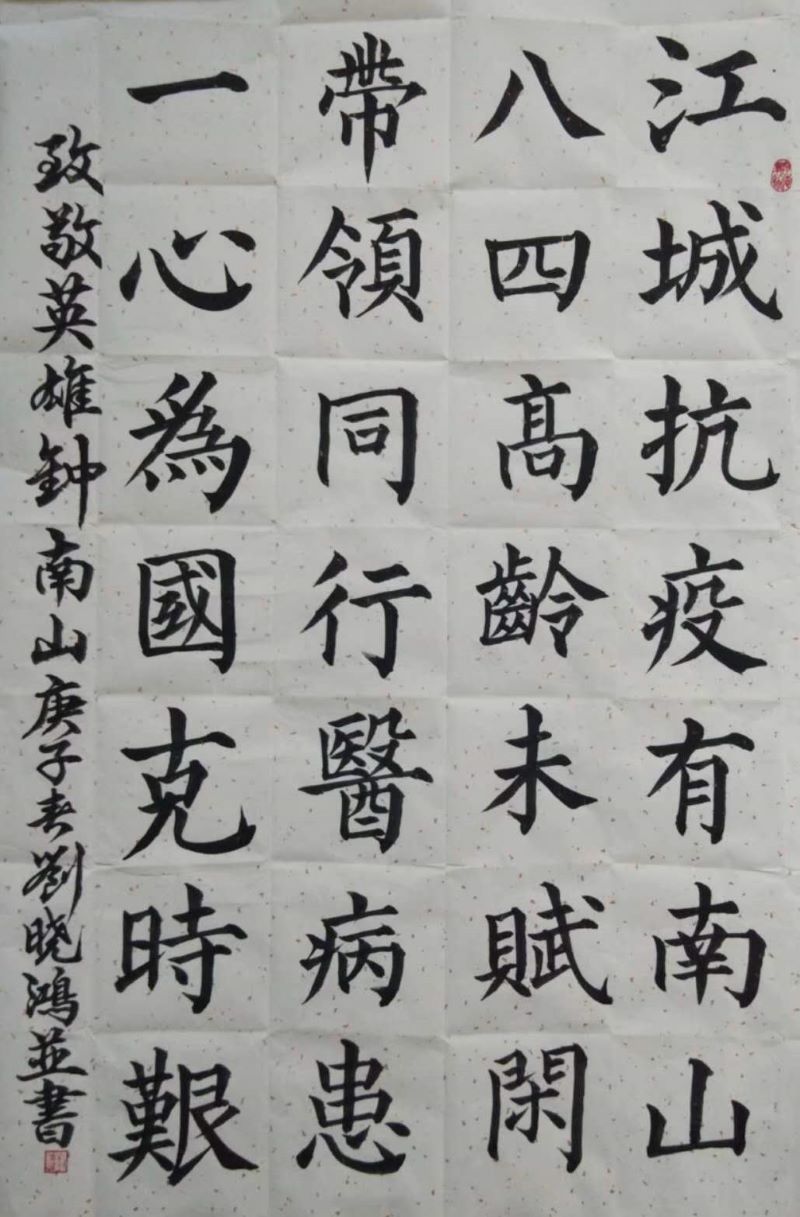 江城抗疫有南山
八四高齡未賦閑
帶領同行醫病患
一心為國克時艱
致敬英雄鍾南山庚子春劉曉鴻並書